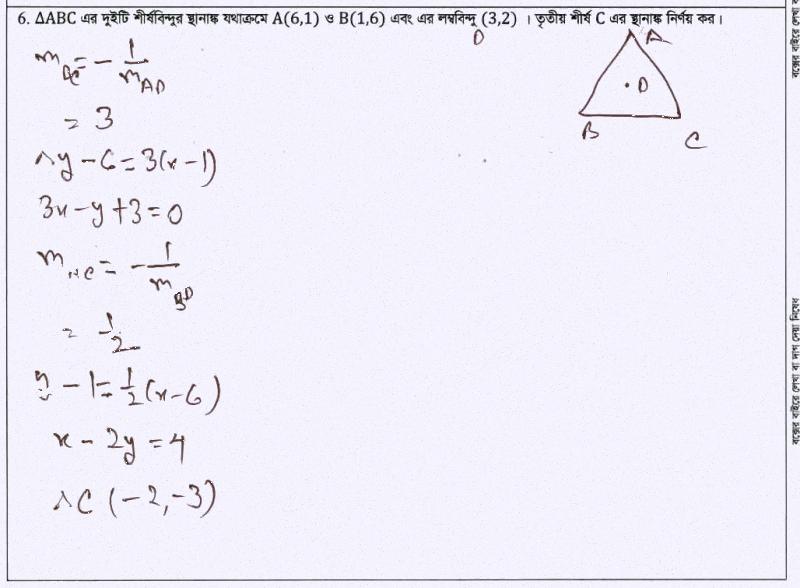 6. ΔABC এর দুইটি শীর্ষবিন্দুর স্থানাঙ্ক যথাক্রমে A(6,1) ও B(1,6) এবং এর লম্ববিন্দু (3,2) । তৃতীয় শীর্ষ C এর স্থানাঙ্ক নির্ণয় কর।
D
A
D
B
C
m_BC = - 1/m_AD
= 3
∴ y - 6 = 3(x - 1)
3x - y + 3 = 0
m_AC = - 1/m_BD
= 1/2
y - 1 = 1/2 (x - 6)
x - 2y = 4
∴ C (-2, -3)
বক্সের বাইরে লেখা বা দাগ দেয়া নিষেধ